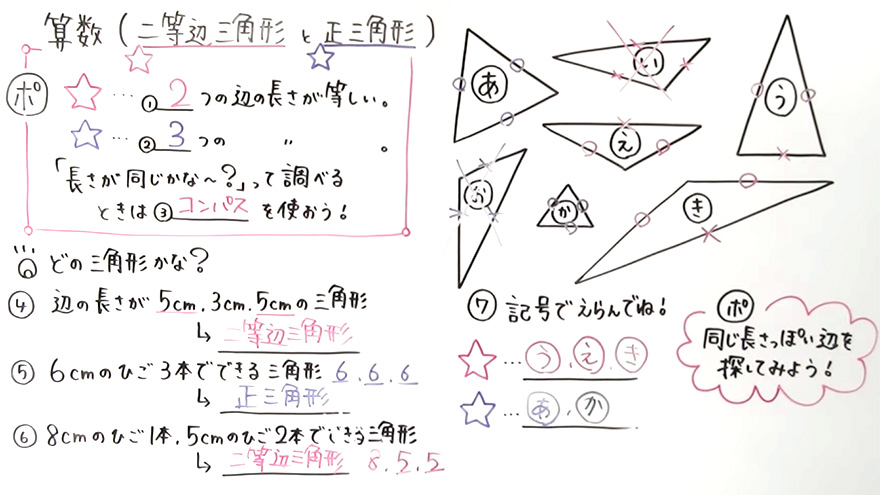 算数(二等辺三角形と正三角形)
ポ
… ① 2つの辺の長さが等しい。
… ② 3つの 〃 。
「長さが同じかな〜?」って調べる
ときは ③ コンパス を使おう!
どの三角形かな?
④ 辺の長さが 5cm, 3cm, 5cmの三角形
↳ 二等辺三角形
⑤ 6cmのひご3本でできる三角形 6, 6, 6
↳ 正三角形
⑥ 8cmのひご1本, 5cmのひご2本でできる三角形
↳ 二等辺三角形 8, 5, 5
あ
い
う
え
お
か
き
⑦ 記号でえらんでね!
… う, え, き
… あ, か
ポ
同じ長さっぽい辺を
探してみよう!